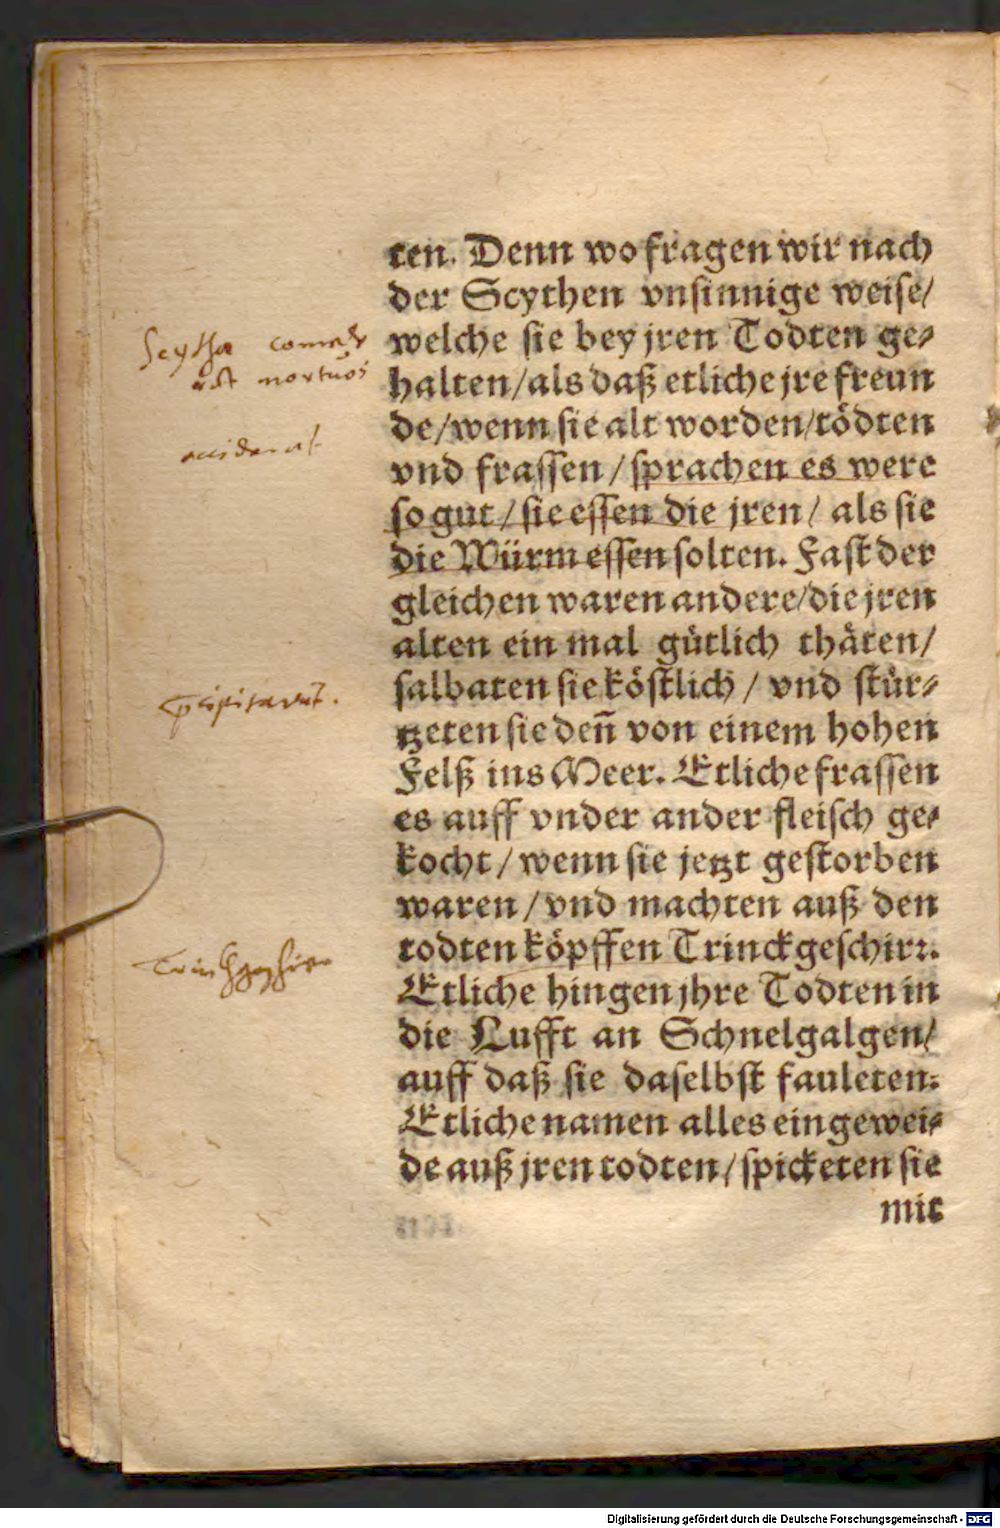 ten. Denn wo fragen wir nach
der Scythen vnsinnige weise/
welche sie bey jren Todten ge-
halten/als daß etliche jre freun
de/wenn sie alt worden/tödten
vnd frassen/sprachen es were
so gut/sie essen die jren/ als sie
die Würm essen solten. Fast der
gleichen waren andere/die jren
alten ein mal gütlich thäten/
salbaten sie köstlich/ vnd stür-
tzeten sie deñ von einem hohen
Felß ins Meer. Etliche frassen
es auff vnder ander fleisch ge-
kocht/wenn sie jetzt gestorben
waren/vnd machten auß den
todten köpffen Trinckgeschirr.
Etliche hingen jhre Todten in
die Lufft an Schnelgalgen/
auff daß sie daselbst fauleten.
Etliche namen alles eingewei-
de auß jren todten/spicketen sie
mit
Scythæ
mortuos
Digitalisierung gefördert durch die Deutsche Forschungsgemeinschaft - DFG